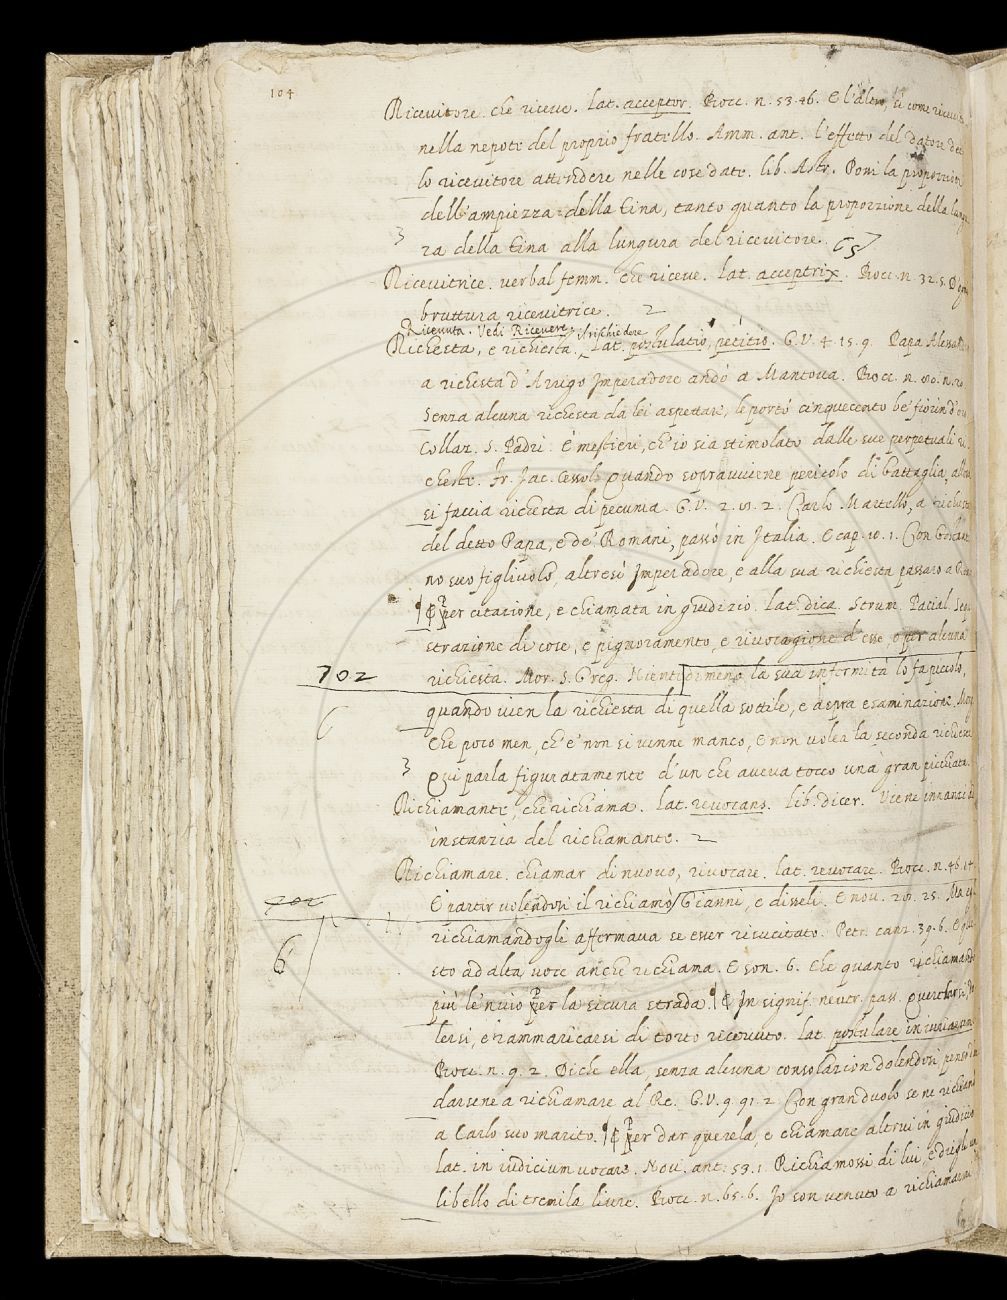 104
Ricevitore. che riceve. Lat. acceptor. Bocc. n. 53.46. E l'altro, sì come ricevitore
nella nepote del proprio fratello. Amm. ant. l'effetto del datore dee
lo ricevitore attendere nelle cose date. lib. Astr. Poni la proporzion
dell'ampiezza della tina, tanto quanto la proporzione della lungu
ra della tina alla lungura del ricevitore. C 5
3
Ricevitrice. verbal femm. che riceve. Lat. acceptrix. Bocc. n. 32.5. D'ogni
bruttura ricevitrice. 2
Ricevuta. Vedi Ricevere.
Richesta, e richiesta. Il richiedere Lat. postulatio, petitio. G.V. 4.15.9. Papa Alessandro
a richesta d'Arrigo Imperadore andò a Mantova. Bocc. n. 80.
Senza alcuna richesta da lei aspettare, le portò cinquecento be' fiorin d'oro
Collaz. S. Padri. È mestieri, ch'io sia stimolato dalle sue perpetuali ri
cheste. Fr. Jac. Cessol. Quando sopravviene pericolo di battaglia, allora
si faccia richesta di pecunia. G.V. 2. 2. Carlo Martello, a richesta
del detto Papa, e de' Romani, passò in Italia. E cap. 10. 1. Con
no suo figliuolo, altresì Imperadore, e alla sua richiesta passaro a
¶ Per citazione, e chiamata in giudizio. Lat. dica. Strum. Pacial. Seque
strazione di cose, e pignoramento, e rivocagione d'esse, o per alcuna
702 richiesta. Mor. S. Greg. Nientedimeno la sua infermità lo fa picciolo,
6 quando vien la richiesta di quella sottile, e aspra esaminazione.
Che poco men, ch'e' non si venne manco, E non volea la seconda richiesta
3 Qui parla figuratamente d'un che aveva tocco una gran picchiata.
Richiamante, che richiama. Lat. revocans. lib. dicer. Viene innanzi di
instanzia del richiamante. 2
Richiamare. chiamar di nuovo, rivocare. lat. revocare. Bocc. n. 46.14
702 E partir volendosi il richiamò Gianni, e disseli. E nov. 20. 25.
richiamandogli affermava se esser risucitato. Petr. canz. 39.6. E que
6 sto ad alta voce anche richiama. E son. 6. Che quanto richiamando
più le 'nvio per la sicura strada. ¶ In signif. neutr. pass. Querelarsi, do
lersi, e rammaricarsi di torto ricevuto. lat. postulare in iudicium
Bocc. n. 9. 2. Di che ella, senza alcuna consolazion dolendosi pensò d'an
darsene a richiamare al Re. G.V. 9. 91. 2 Con gran duolo se ne richiamò
a Carlo suo marito. ¶ Per dar querela, e chiamare altrui in giudicio
lat. in iudicium vocare. Nov. ant. 53. 1. Richiamossi di lui, e diegli un
libello di tremila livre. Bocc. n. 65. 6. Io son venuto a richiamarmi